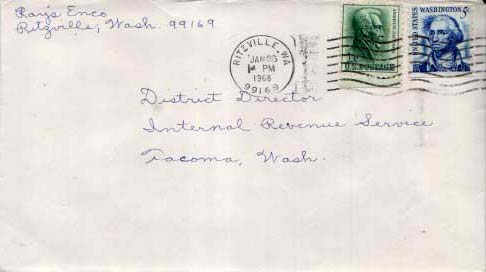 Ray's Enco
Ritzville, Wash. 99169
RITZVILLE, WA
JAN 26
PM
1968
99169
U.S. POSTAGE
UNITED STATES
WASHINGTON 5c
District Director
Internal Revenue Service
Tacoma, Wash.